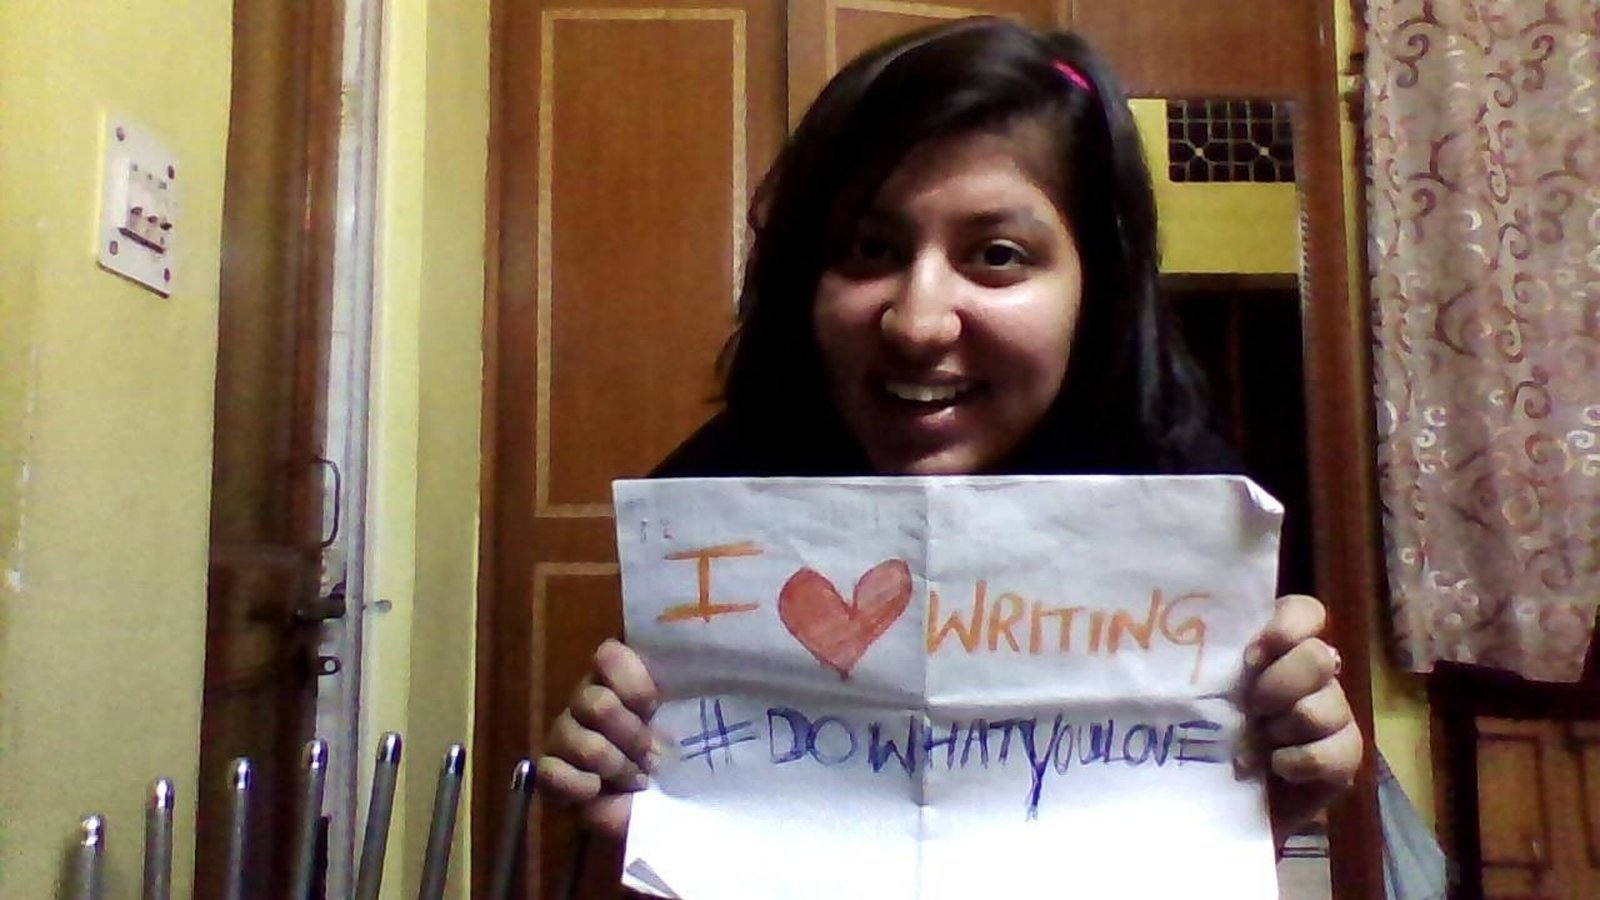 I ❤ WRITING
#DOWHATYOULOVE